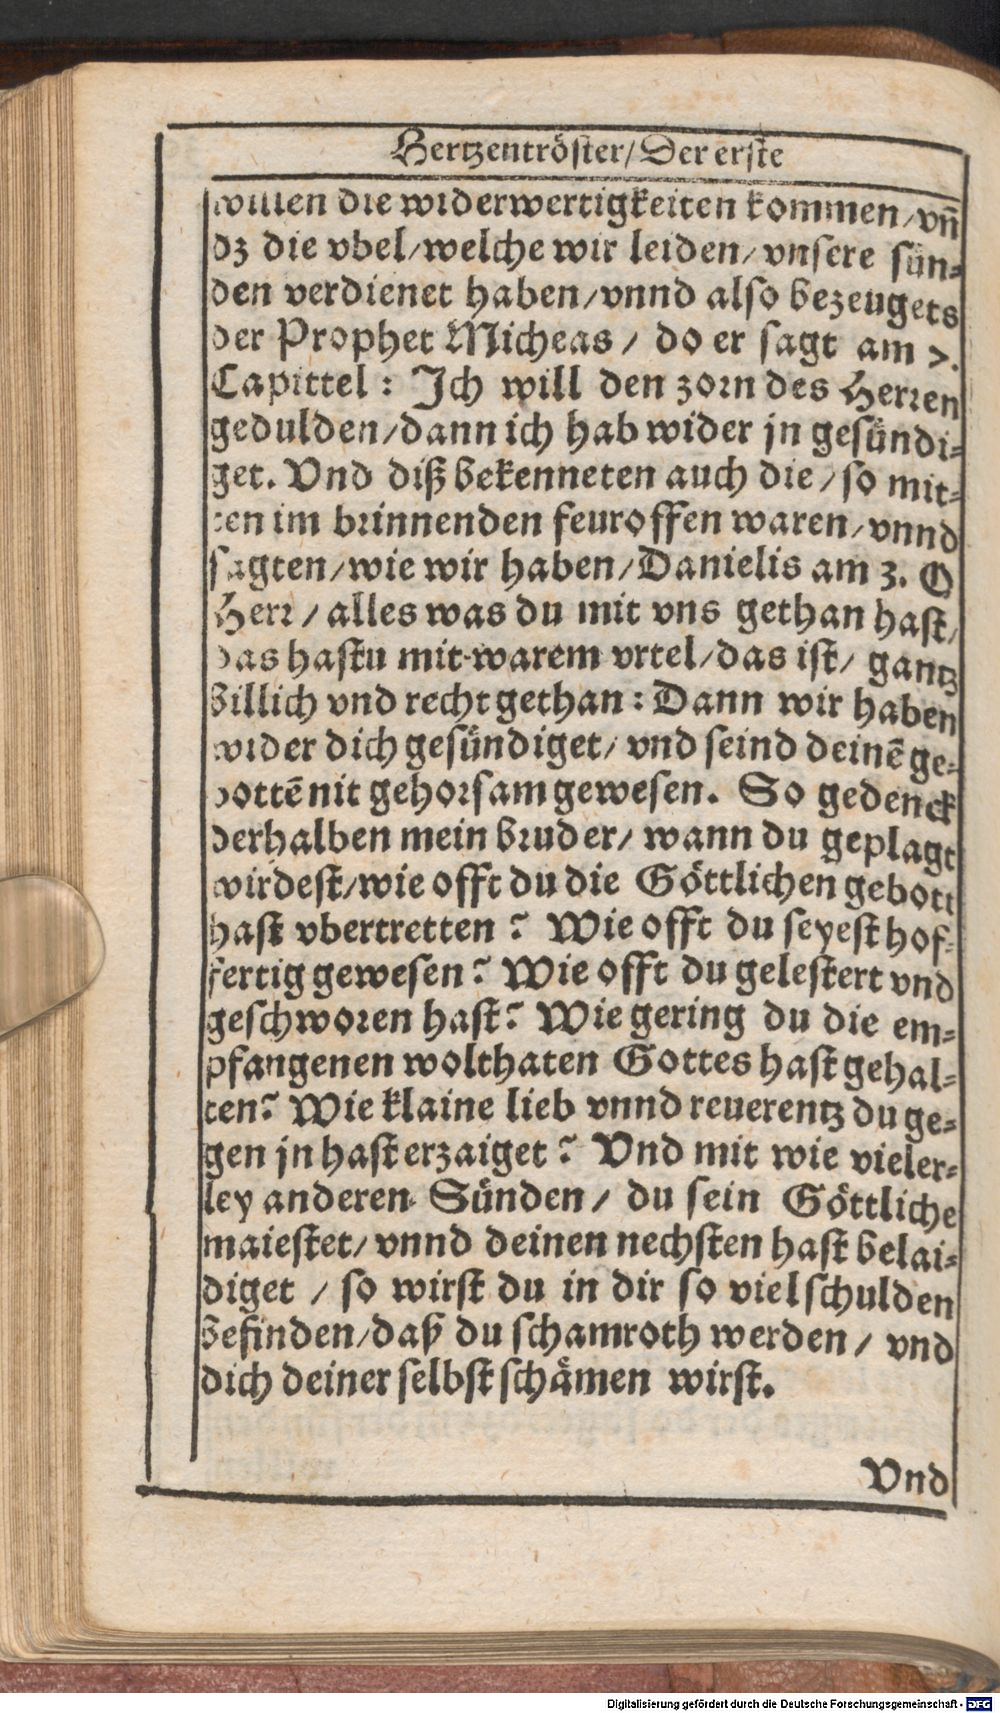 Hertzentröster/Der erste
willen die widerwertigkeiten kommen/vñ
dz die vbel/welche wir leiden/vnsere sün-
den verdienet haben/vnnd also bezeugets
der Prophet Micheas/ do er sagt am 7.
Capittel: Ich will den zorn des Herren
gedulden/dann ich hab wider jn gesündi-
get. Vnd diß bekenneten auch die/so mit-
ten im brinnenden feuroffen waren/vnnd
sagten/wie wir haben/Danielis am 3. O
Herr/alles was du mit vns gethan hast/
das hastu mit warem vrtel/das ist/ gantz
billich vnd recht gethan: Dann wir haben
wider dich gesündiget/ vnd seind deinē ge-
bottē nit gehorsam gewesen. So gedenck
derhalben mein bruder/ wann du geplagt
wirdest/wie offt du die Göttlichen gebott
hast vbertretten? Wie offt du seyest hof-
fertig gewesen? Wie offt du gelestert vnd
geschworen hast? Wie gering du die em-
pfangenen wolthaten Gottes hast gehal-
ten? Wie klaine lieb vnnd reuerentz du ge-
gen jn hast erzaiget? Vnd mit wie vieler-
ley anderen Sünden/ du sein Göttliche
maiestet/ vnnd deinen nechsten hast belai-
diget / so wirst du in dir so viel schulden
befinden/daß du schamroth werden/ vnd
dich deiner selbst schämen wirst.
Vnd
Digitalisierung gefördert durch die Deutsche Forschungsgemeinschaft - DFG